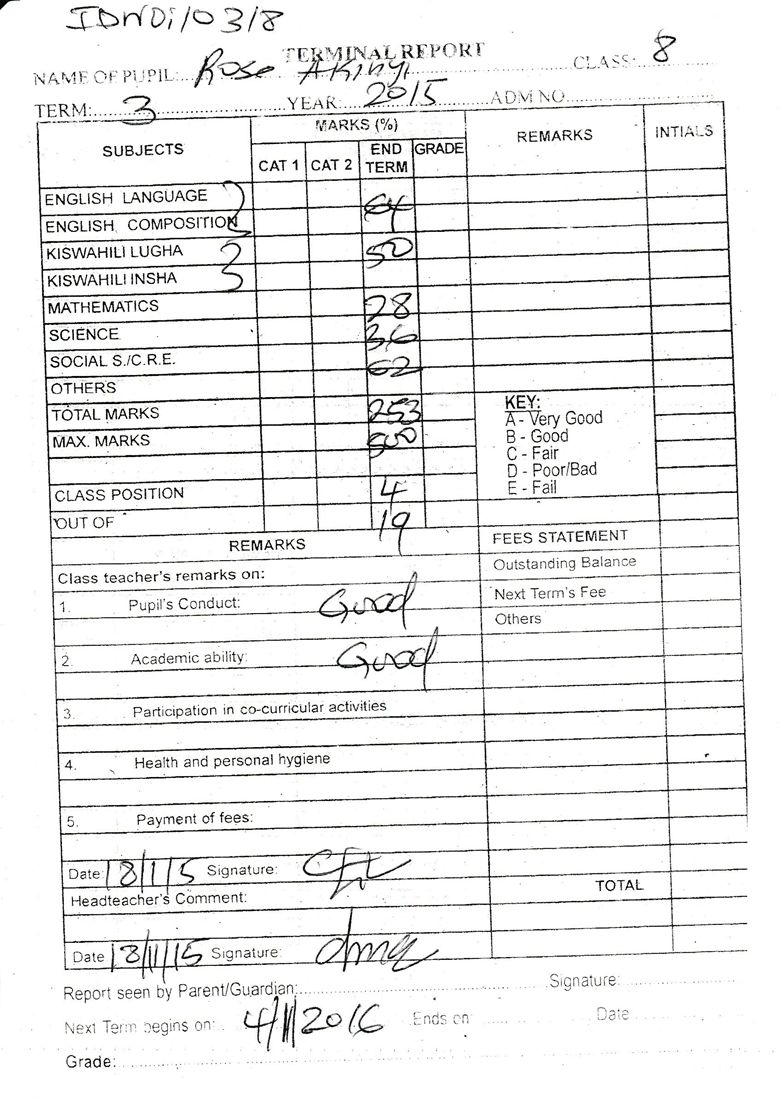 IDNDi/03/8
TERMINAL REPORT
NAME OF PUPIL: Rose Akinyi CLASS: 8
TERM: 3 YEAR: 2015 ADM NO
SUBJECTS MARKS (%) REMARKS INTIALS
CAT 1 CAT 2 END TERM GRADE
ENGLISH LANGUAGE 64
ENGLISH COMPOSITION
KISWAHILI LUGHA 50
KISWAHILI INSHA
MATHEMATICS 28
SCIENCE 36
SOCIAL S./C.R.E. 62
OTHERS
TOTAL MARKS 253
MAX. MARKS 500
KEY:
A - Very Good
B - Good
C - Fair
D - Poor/Bad
E - Fail
CLASS POSITION 4
OUT OF 19
REMARKS FEES STATEMENT
Class teacher's remarks on: Outstanding Balance
1. Pupil's Conduct: Good Next Term's Fee
Others
2. Academic ability: Good
3. Participation in co-curricular activities
4. Health and personal hygiene
5. Payment of fees:
Date Signature:
Headteacher's Comment: TOTAL
Date 13/11/15 Signature:
Report seen by Parent/Guardian: Signature:
Next Term begins on: 4/1/2016 Ends on Date
Grade: